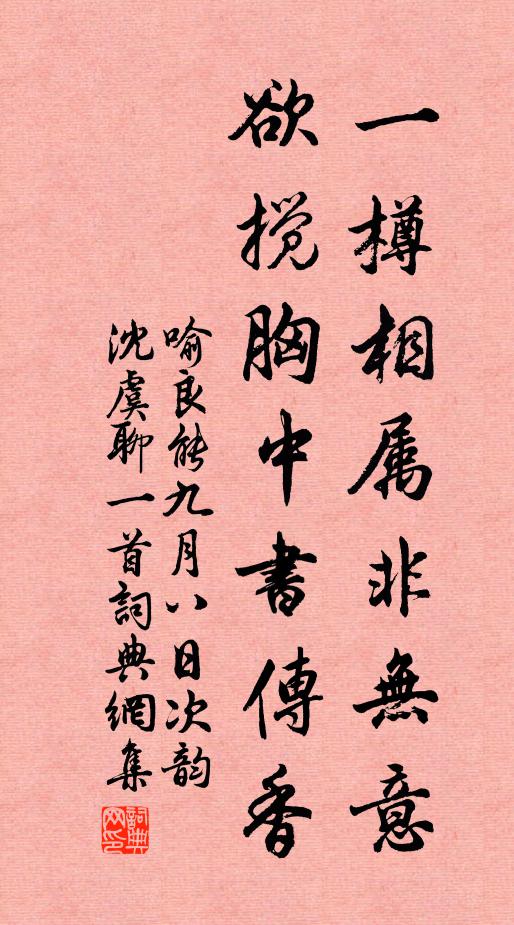 一樽相属非無意
欲攪胸中書傳香
喻良能九月八日次韵
沈虞聊一首詞典網集
詞典网印